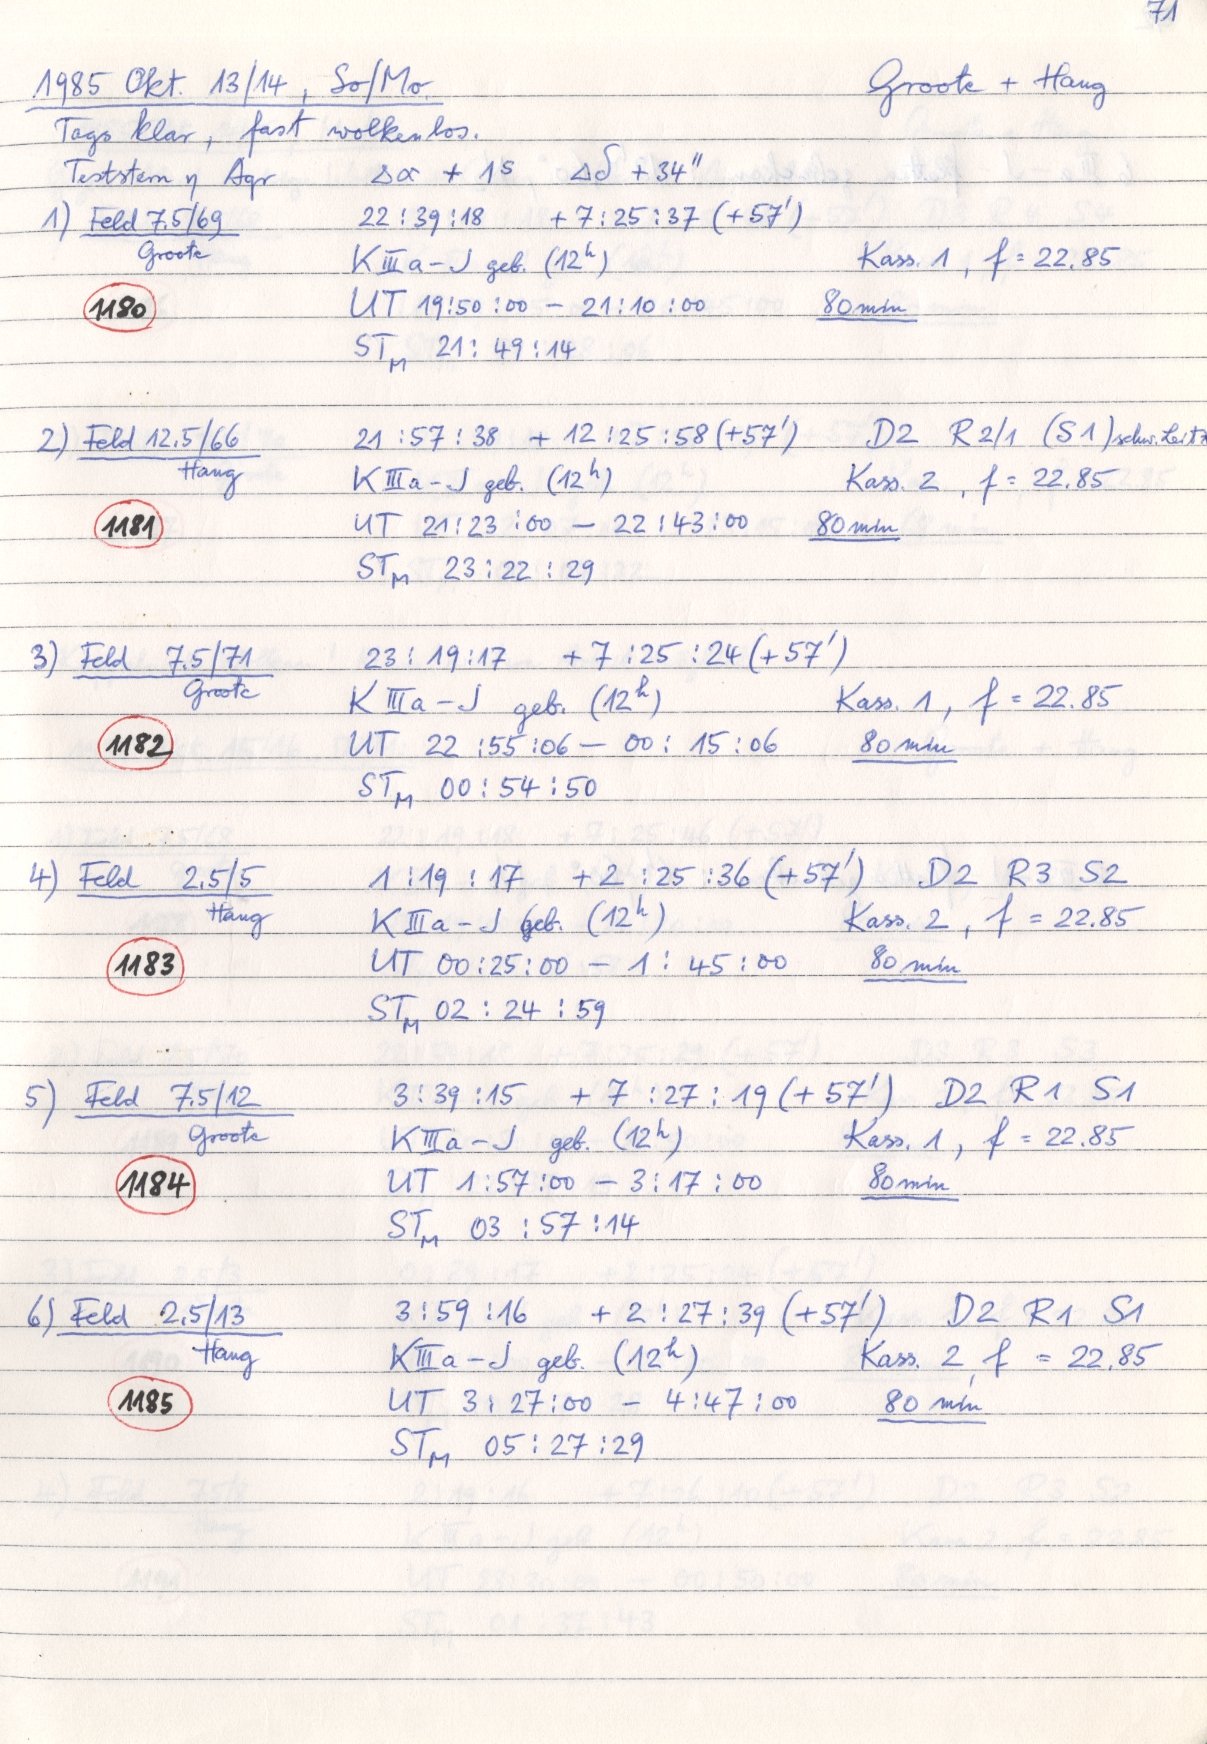 71
1985 Okt. 13/14, So/Mo. Groote + Haug
Tags klar, fast wolkenlos.
Teststern η Aqr Δα + 1s Δδ + 34"
1) Feld 7.5/69 22:39:18 + 7:25:37 (+57')
Groote KIIIa-J geb. (12h) Kass. 1, f = 22.85
1180 UT 19:50:00 - 21:10:00 80min
STM 21:49:14
2) Feld 12.5/66 21:57:38 + 12:25:58 (+57') D2 R2/1 (S1) schw.
Haug KIIIa-J geb. (12h) Kass. 2, f = 22.85
1181 UT 21:23:00 - 22:43:00 80min
STM 23:22:29
3) Feld 7.5/71 23:19:17 + 7:25:24 (+57')
Groote KIIIa-J geb. (12h) Kass. 1, f = 22.85
1182 UT 22:55:06 - 00:15:06 80min
STM 00:54:50
4) Feld 2.5/5 1:19:17 + 2:25:36 (+57') D2 R3 S2
Haug KIIIa-J geb. (12h) Kass. 2, f = 22.85
1183 UT 00:25:00 - 1:45:00 80min
STM 02:24:59
5) Feld 7.5/12 3:39:15 + 7:27:19 (+57') D2 R1 S1
Groote KIIIa-J geb. (12h) Kass. 1, f = 22.85
1184 UT 1:57:00 - 3:17:00 80min
STM 03:57:14
6) Feld 2.5/13 3:59:16 + 2:27:39 (+57') D2 R1 S1
Haug KIIIa-J geb. (12h) Kass. 2, f = 22.85
1185 UT 3:27:00 - 4:47:00 80 min
STM 05:27:29